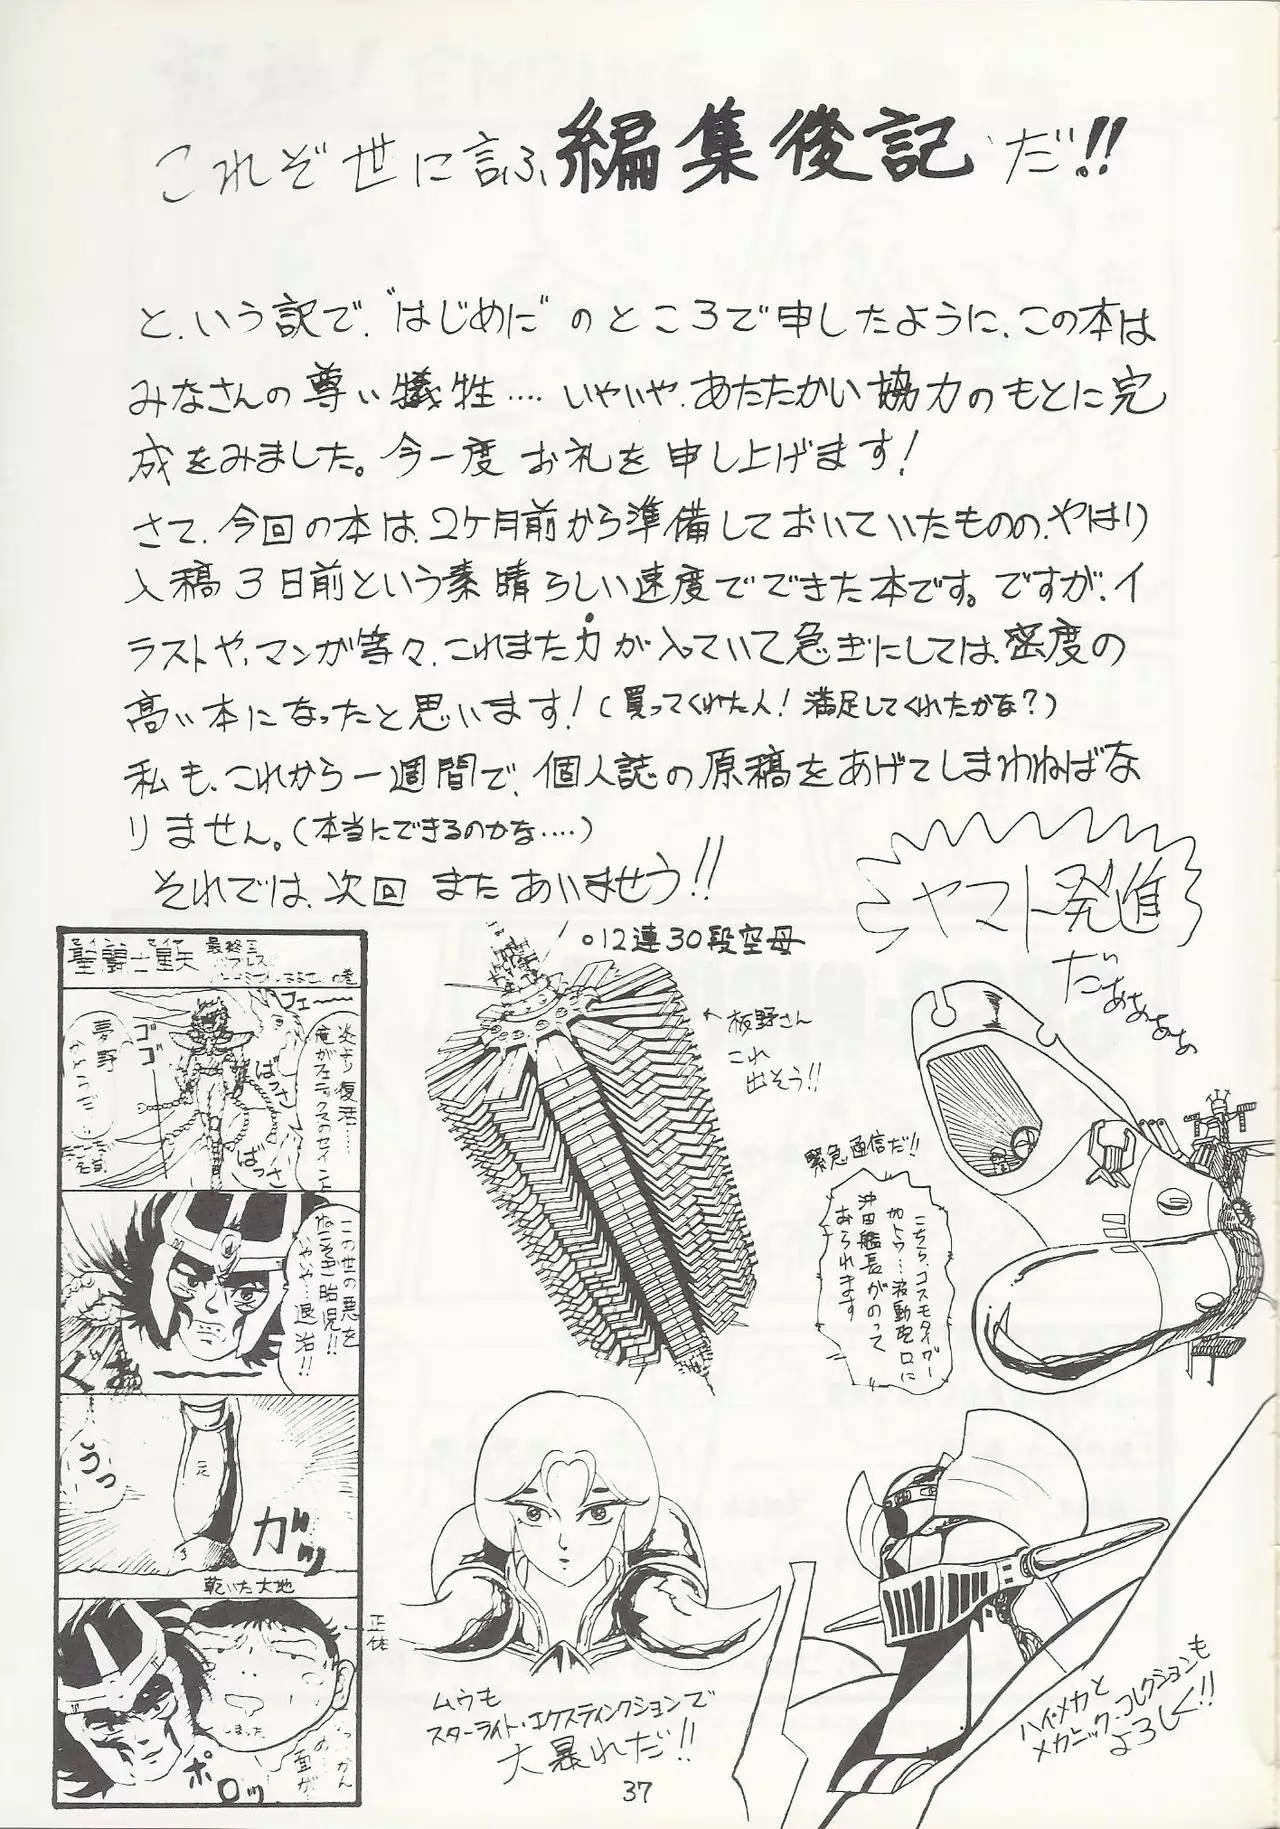 これぞ世に言ふ編集後記だ!!
と、いう訳で、“はじめに”のところで申したように、この本は
みなさんの尊い犠牲‥‥いやいや、あたたかい協力のもとに完
成をみました。今一度お礼を申し上げます!
さて、今回の本は、2ヶ月前から準備しておいていたものの、やはり
入稿3日前という素晴らしい速度でできた本です。ですが、イ
ラストや、マンガ等々、これまた力が入っていて急ぎにしては、密度の
高い本になったと思います!(買ってくれた人!満足してくれたかな?)
私も、これから一週間で、個人誌の原稿をあげてしまわねばな
りません。(本当にできるのかな‥‥)
それでは、次回またあいませう!!
ヤマト発進
だぁぁぁぁぁ
○12連30段空母
板野さん
これ
出そう!!
緊急通信だ!!
こちら、コスモタイガー
加トウ…波動砲口に
沖田艦長がのって
おられます
聖闘士
最終
の巻
フェ〜〜
炎より復活……
俺がフェニックスのセイント
ゴゴゴ
ばっさ
ばっさ
この世の悪を
胎児!!
いやいや…退治!!
うっ
ガッ
乾いた大地
正体
ポロッ
ムウも
スターライト・エクスティンクションで
大暴れだ!!
ハイ・メカと
メカニック・コレクションも
よろしく!!
37